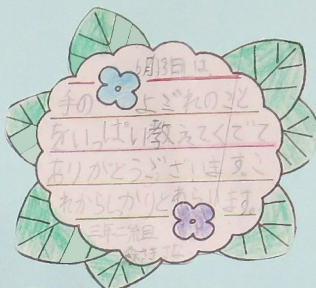 6月13日は
手の よごれのこと
をいっぱい教えてくでて
ありがとうございます。こ
れからしっかりとあらいます。
三年二組